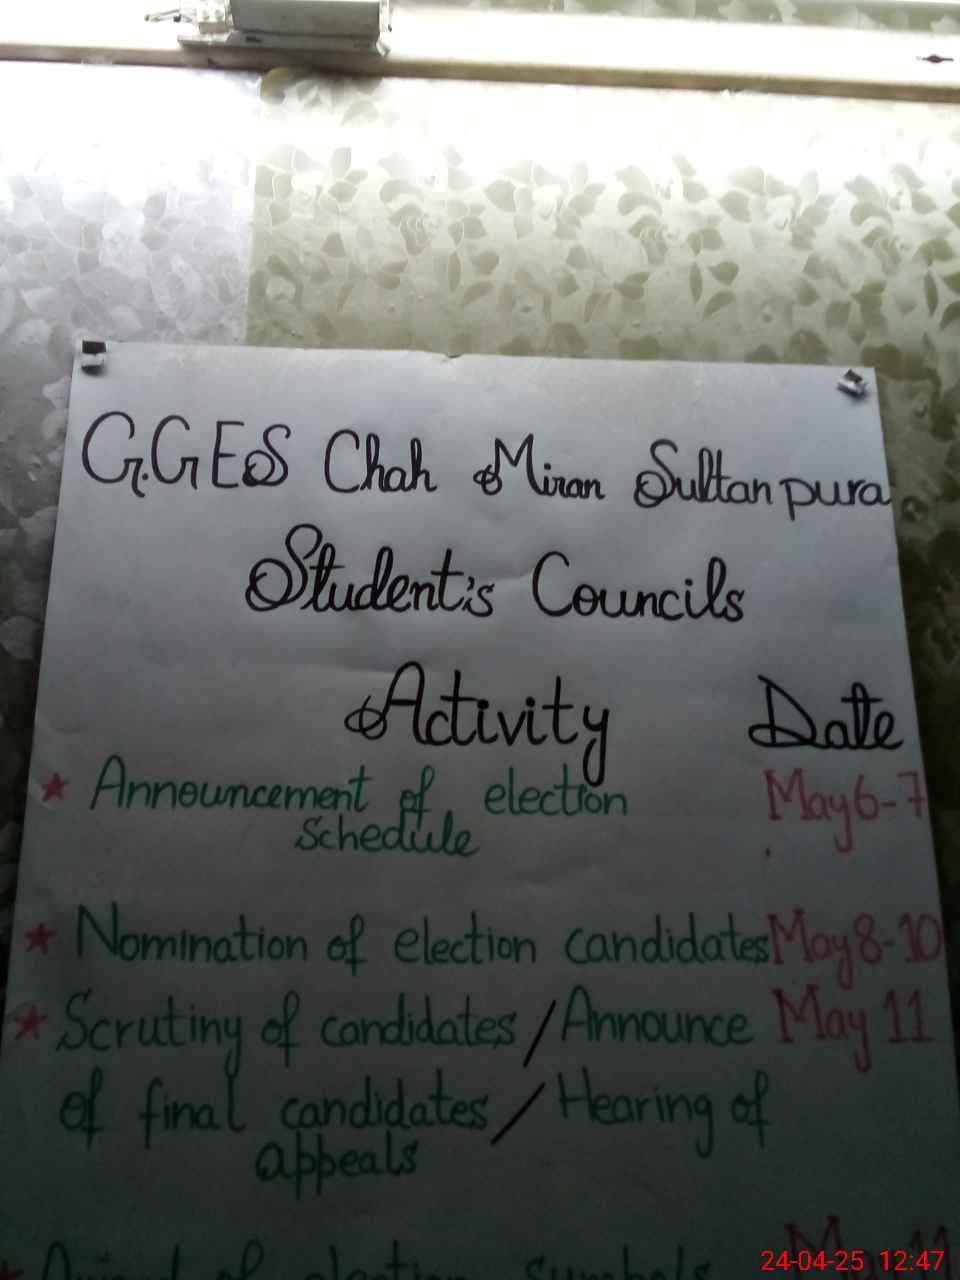 G.GES Chah Miran Sultanpura
Student's Councils
Activity Date
★ Announcement of election May 6-7
schedule
★ Nomination of election candidates May 8-10
★ Scrutiny of candidates / Announce May 11
of final candidates / Hearing of
appeals
of election symbols May 11
24-04-25 12:47